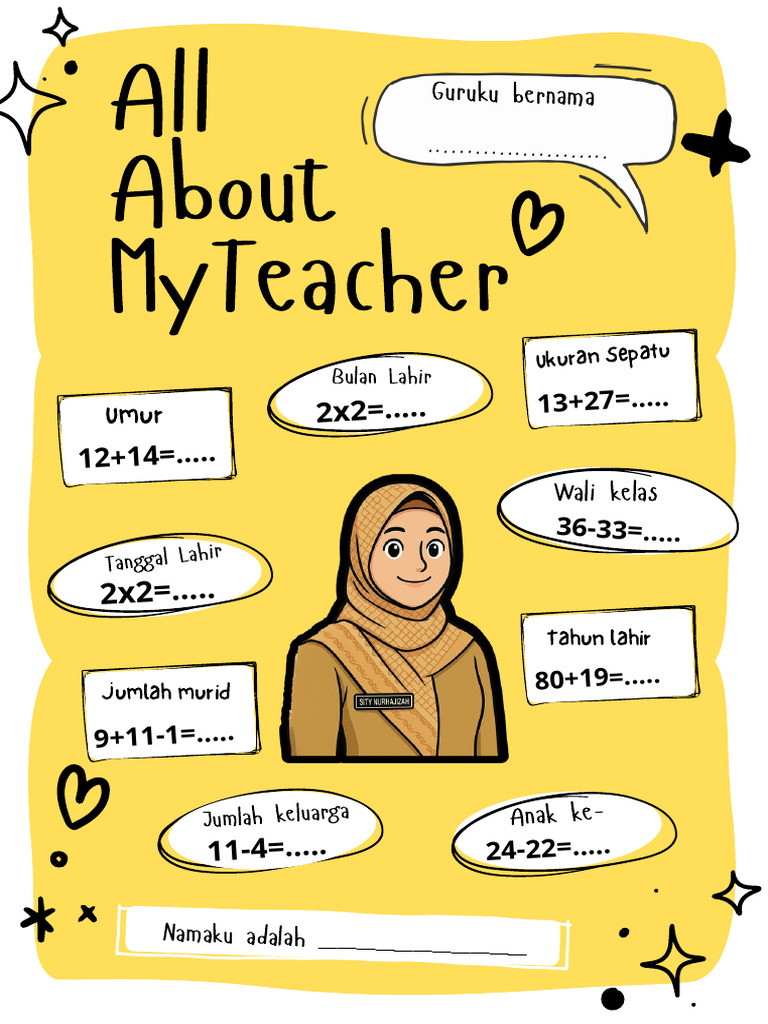 All
About
MyTeacher
Guruku bernama
......................
Umur
12+14=.....
Bulan Lahir
2x2=.....
Ukuran Sepatu
13+27=.....
Wali kelas
36-33=.....
Tanggal Lahir
2x2=.....
Tahun lahir
80+19=.....
Jumlah murid
9+11-1=.....
SITY NURHAJIZAH
Jumlah keluarga
11-4=.....
Anak ke-
24-22=.....
Namaku adalah ____________________